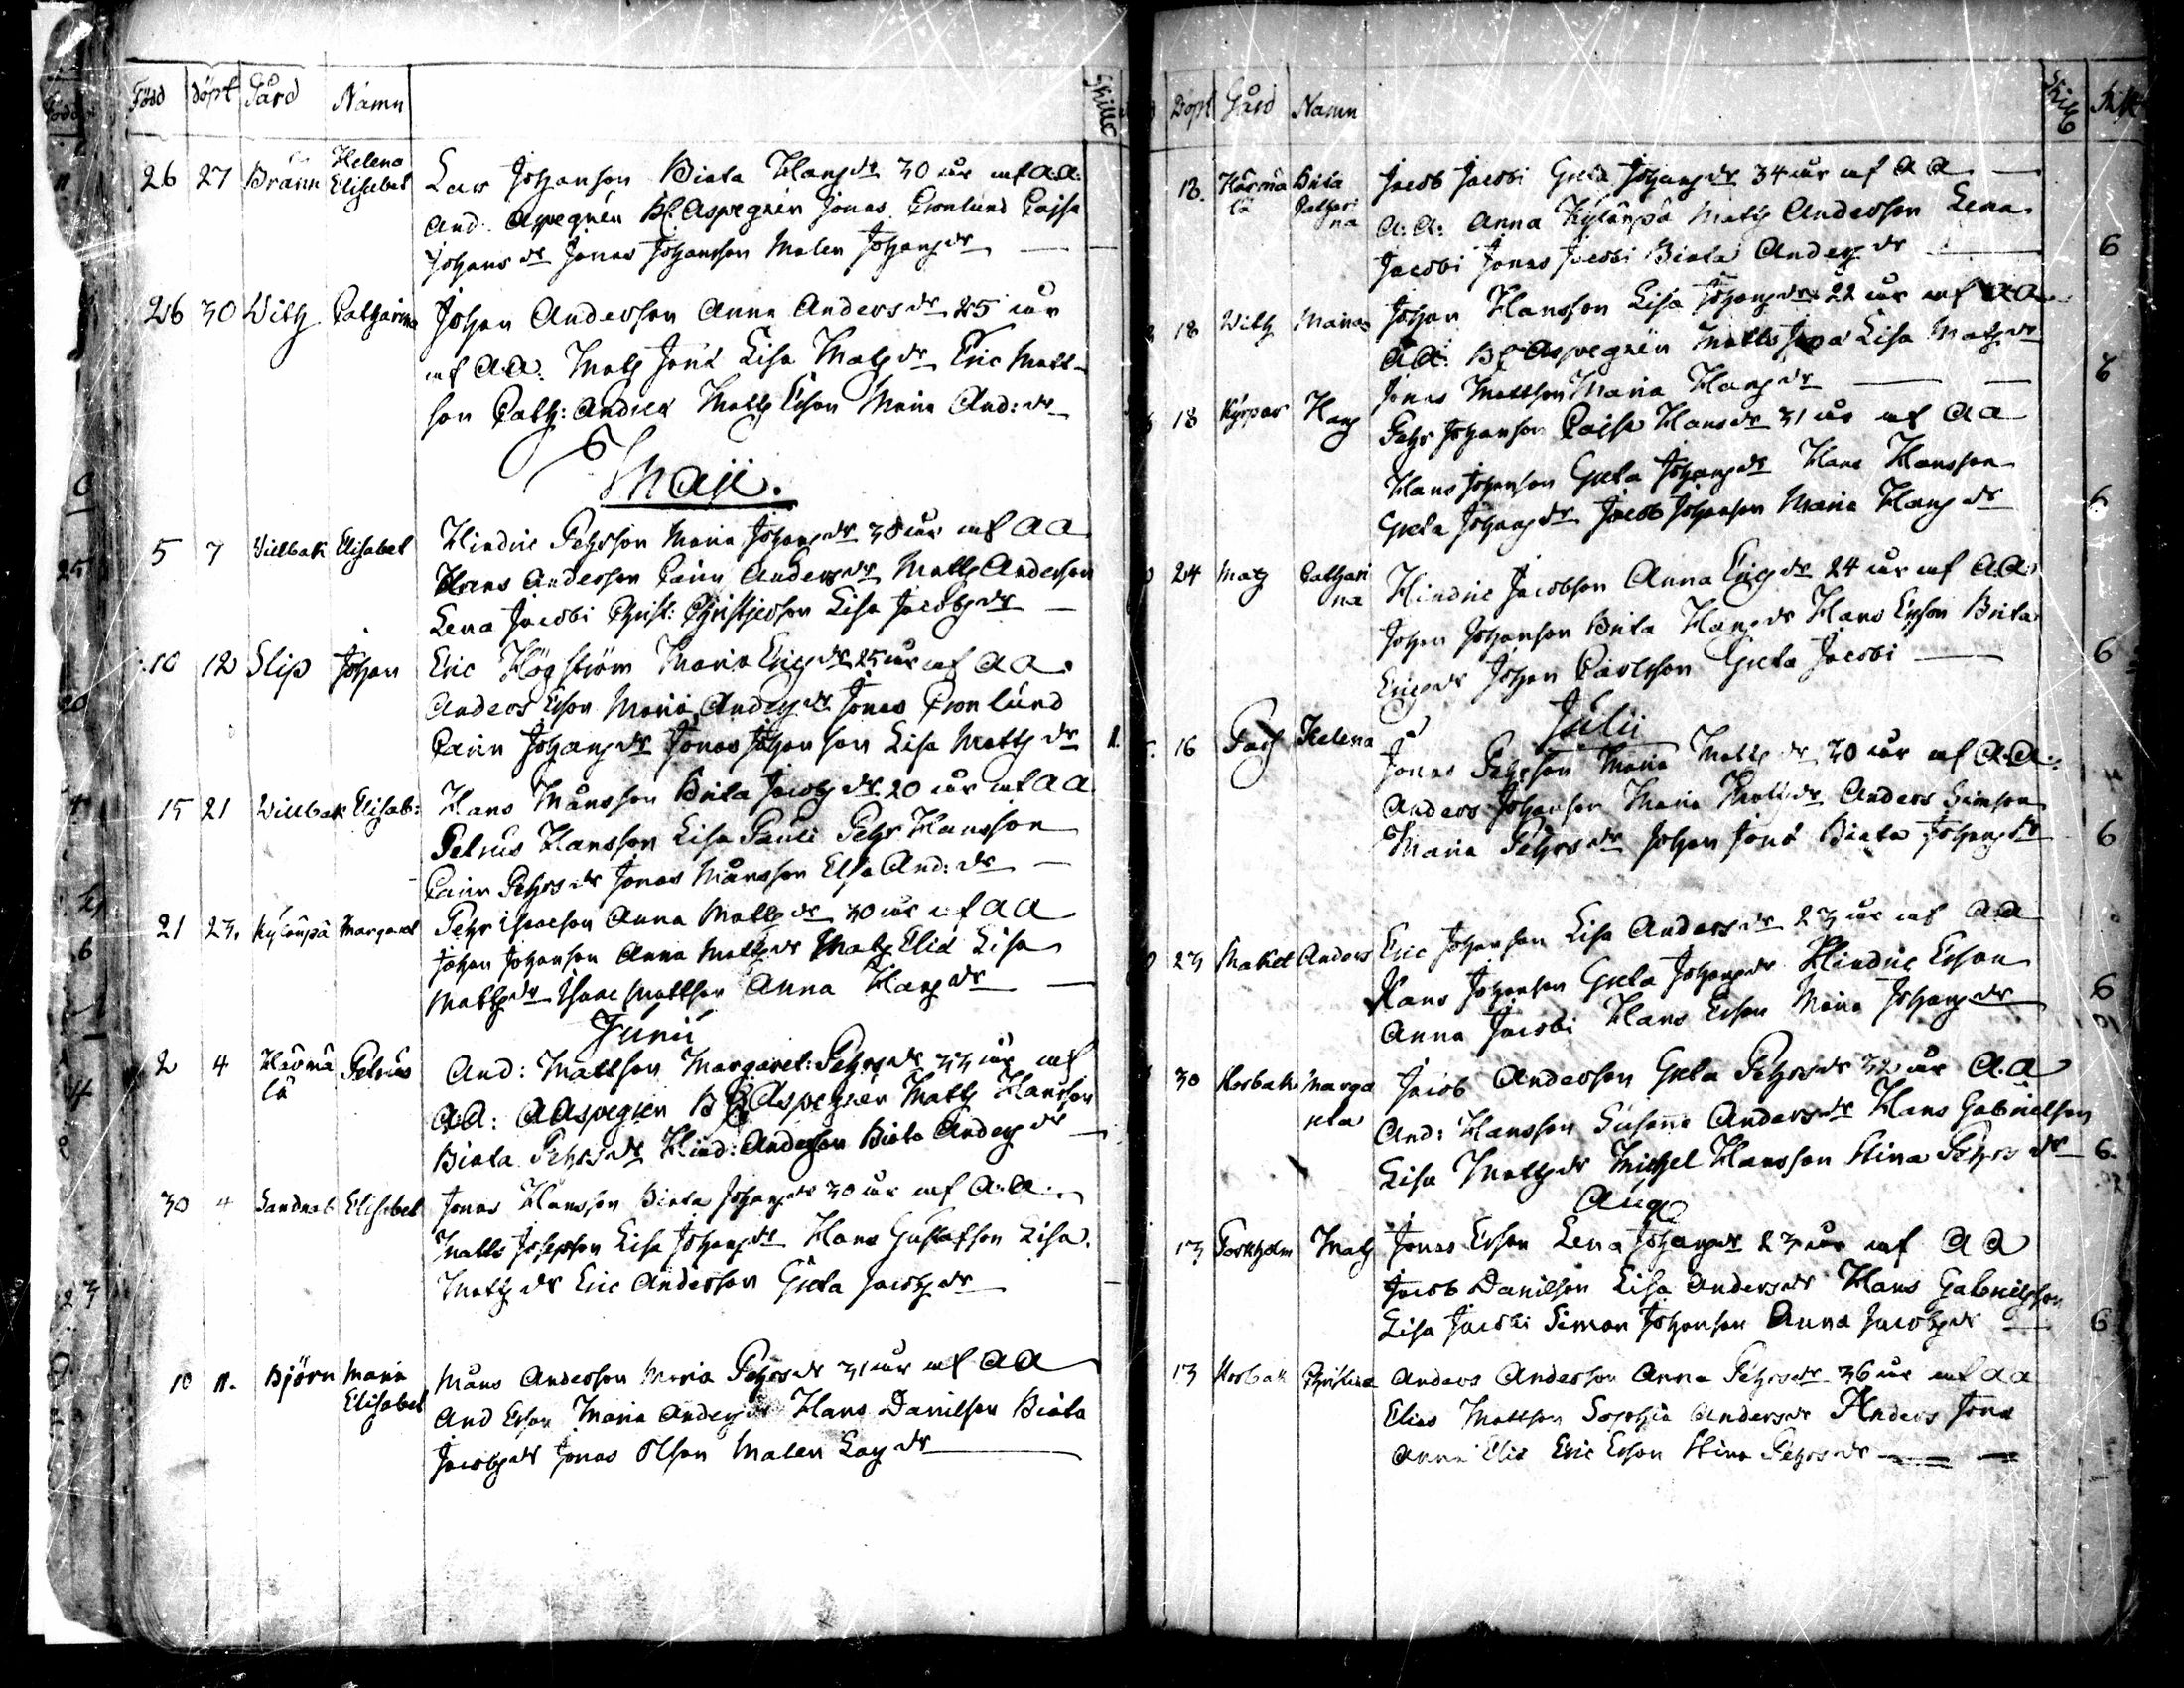 Född döpt Gård Namn Skill
26 27 Bränn Helena Elisabet Lars Johansson Biata Hansdr 30 år af A.A.
And: Aspegrén Bf Aspegrén Jonas Cronlund Cajsa
Johansdr Jonas Johansson Malen Johansdr
26 30 Witz Catharina Johan Andersson Anna Andersdr 25 år
af A.A. Matz Jonæ Lisa Matzdr Eric Matt-
son Cath: Andreæ Matts Ersson Maria And:dr
Maji.
5 7 Willbak Elisabet Hindric Pehrsson Maria Johansdr 38 år af AA
Hans Andersson Carin Andersdr Matts Andersson
Lena Jacobi Christ: Christjersson Lisa Jacobsdr
10 12 Slip Johan Eric Högström Maria Ericsdr 25 år af AA.
Anders Ersson Maria Andersdr Jonas Cronlund
Carin Johansdr Jonas Johansson Lisa Mattsdr
15 21 Willbak Elisab: Hans Månsson Brita Jacobsdr 20 år af AA
Petrus Hansson Lisa Pauli Pehr Hansson
Carin Pehrsdr Jonas Månsson Elsa And:dr
21 23. Kylänpä Margaret Pehr Isacson Anna Mattsdr 30 år af AA
Johan Johanson Anna Mattsdr Matz Eliæ Lisa
Mattsdr Isaac Mattson Anna Hansdr
Junii
2 4 Härmälä Petrus And: Mattson Margaret: Pehrsdr 33 år af
A:A: A Aspegren Bf Aspegrén Matts Hansson
Biata Pehrsdr Hind: Anderson Biata Andersdr
30 4 Sandnab Elisabet Jonas Hansson Biata Johansdr 30 år af A:A:
Matts Josepson Lisa Johansdr Hans Gustafson Lisa
Mattsdr Eric Anderson Greta Jacobsdr
10 11. Björn Maria Elisabet Måns Anderson Maria Pehrsdr 31 år af AA
And Erson Maria Andersdr Hans Danielson Biata
Jacobsdr Jonas Olson Malen Larsdr
Döpt Gård Namn Skill Skill
18. Härmälä Brita Catharina Jacob Jacobi Greta Johansdr 34 år af A A
A:A: Anna Kylänpä Matz Anderson Lena
Jacobi Jonas Jacobi Biata Andersdr 6
18 Witz Maria Johan Hansson Lisa Johansdr 22 år af AA
A.A. Bf Aspegrén Matts Lisa Matzdr
Jonas Mattson Maria Hansdr 6
18 Kyrpas Hans Pehr Johanson Cajsa Hansdr 31 år af AA
Hans Johanson Greta Johansdr Hans Hansson
Greta Johansdr Jacob Johanson Maria Hansdr 6
24 Matz Catharina Hindric Jacobson Anna Ericsdr 24 år af A.A.
Johan Johanson Brita Hansdr Hans Erson Brita
Ericsdr Johan Carlsson Greta Jacobi 6
Julii
16 Helena Jonas Pehrson Maria Mattsdr 30 år af A:A:
Anders Johanson Maria Mattsdr Anders Simson
Maria Pehrsdr Johan Jonæ Biata Johansdr 6
23 Makel Anders Eric Johanson Lisa Andersdr 23 år af AA
Hans Johanson Greta Johansdr Hindric Erson
Anna Jacobi Hans Erson Maria Johansdr 6
30 Korbak Margareta Jacob Anderson Greta Pehrsdr 32 år A.A
And: Hansson Susanna Andersdr Hans Gabrielson
Lisa Mattsdr Michel Hansson Stina Pehrsdr 6.
Aug
13 Torkholm Matz Jonas Erson Lena Johansdr 23 år af A A
Jacob Danielson Lisa Andersdr Hans Gabrielsson
Lisa Jacobi Simon Johanson Anna Jacobsdr 6
13 Korbak Christina Anders Anderson Anna Pehrsdr 36 år af AA
Elias Mattson Sophia Andersdr Anders Jonæ
Anna Eliæ Eric Erson Stina Pehrsdr